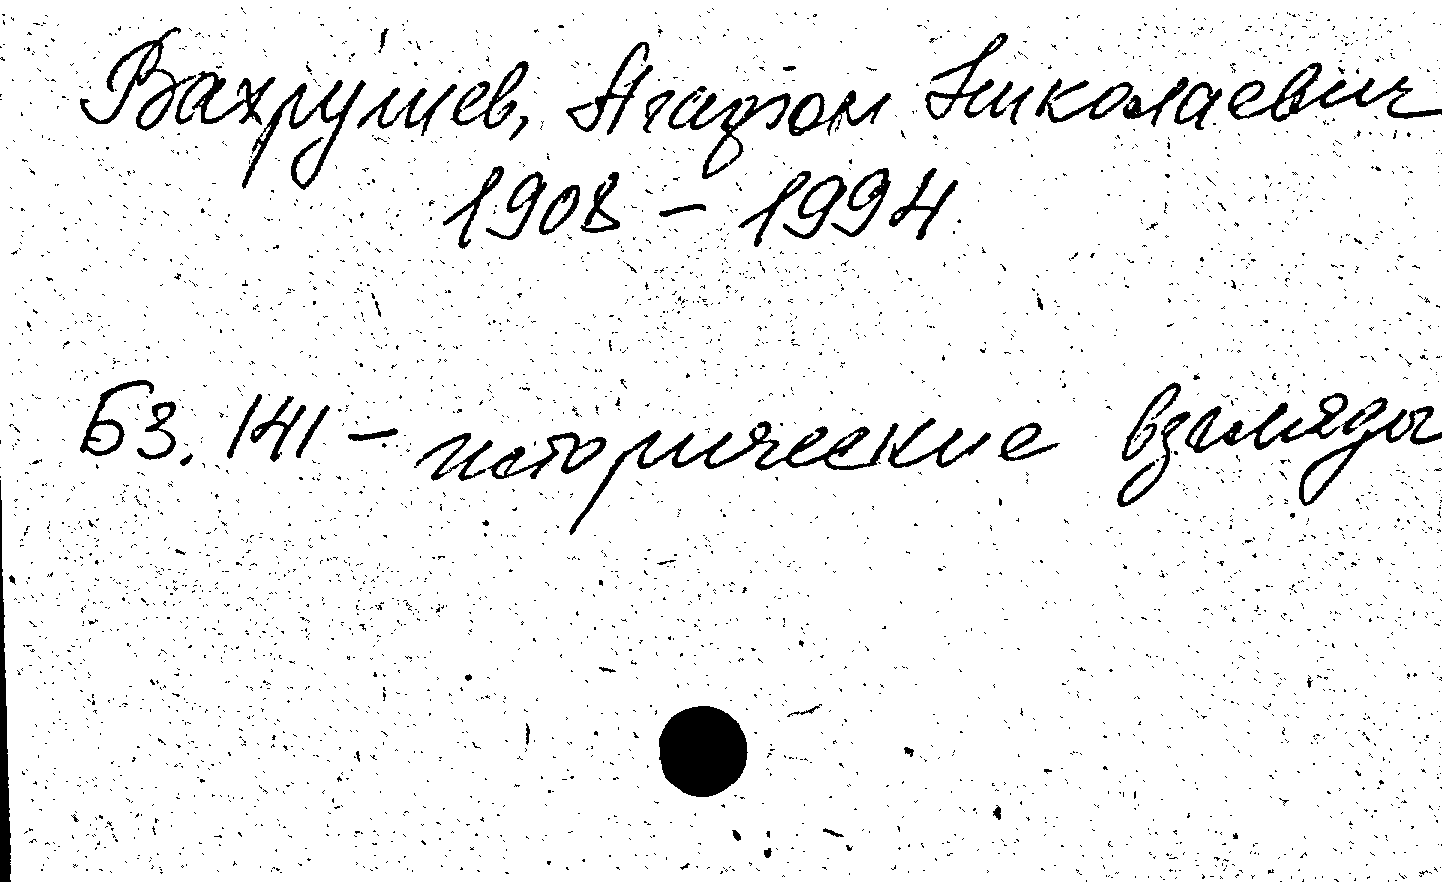 Вахрушев, Агафон Николаевич
1908 - 1994
Б3. 141 - исторические взгляды